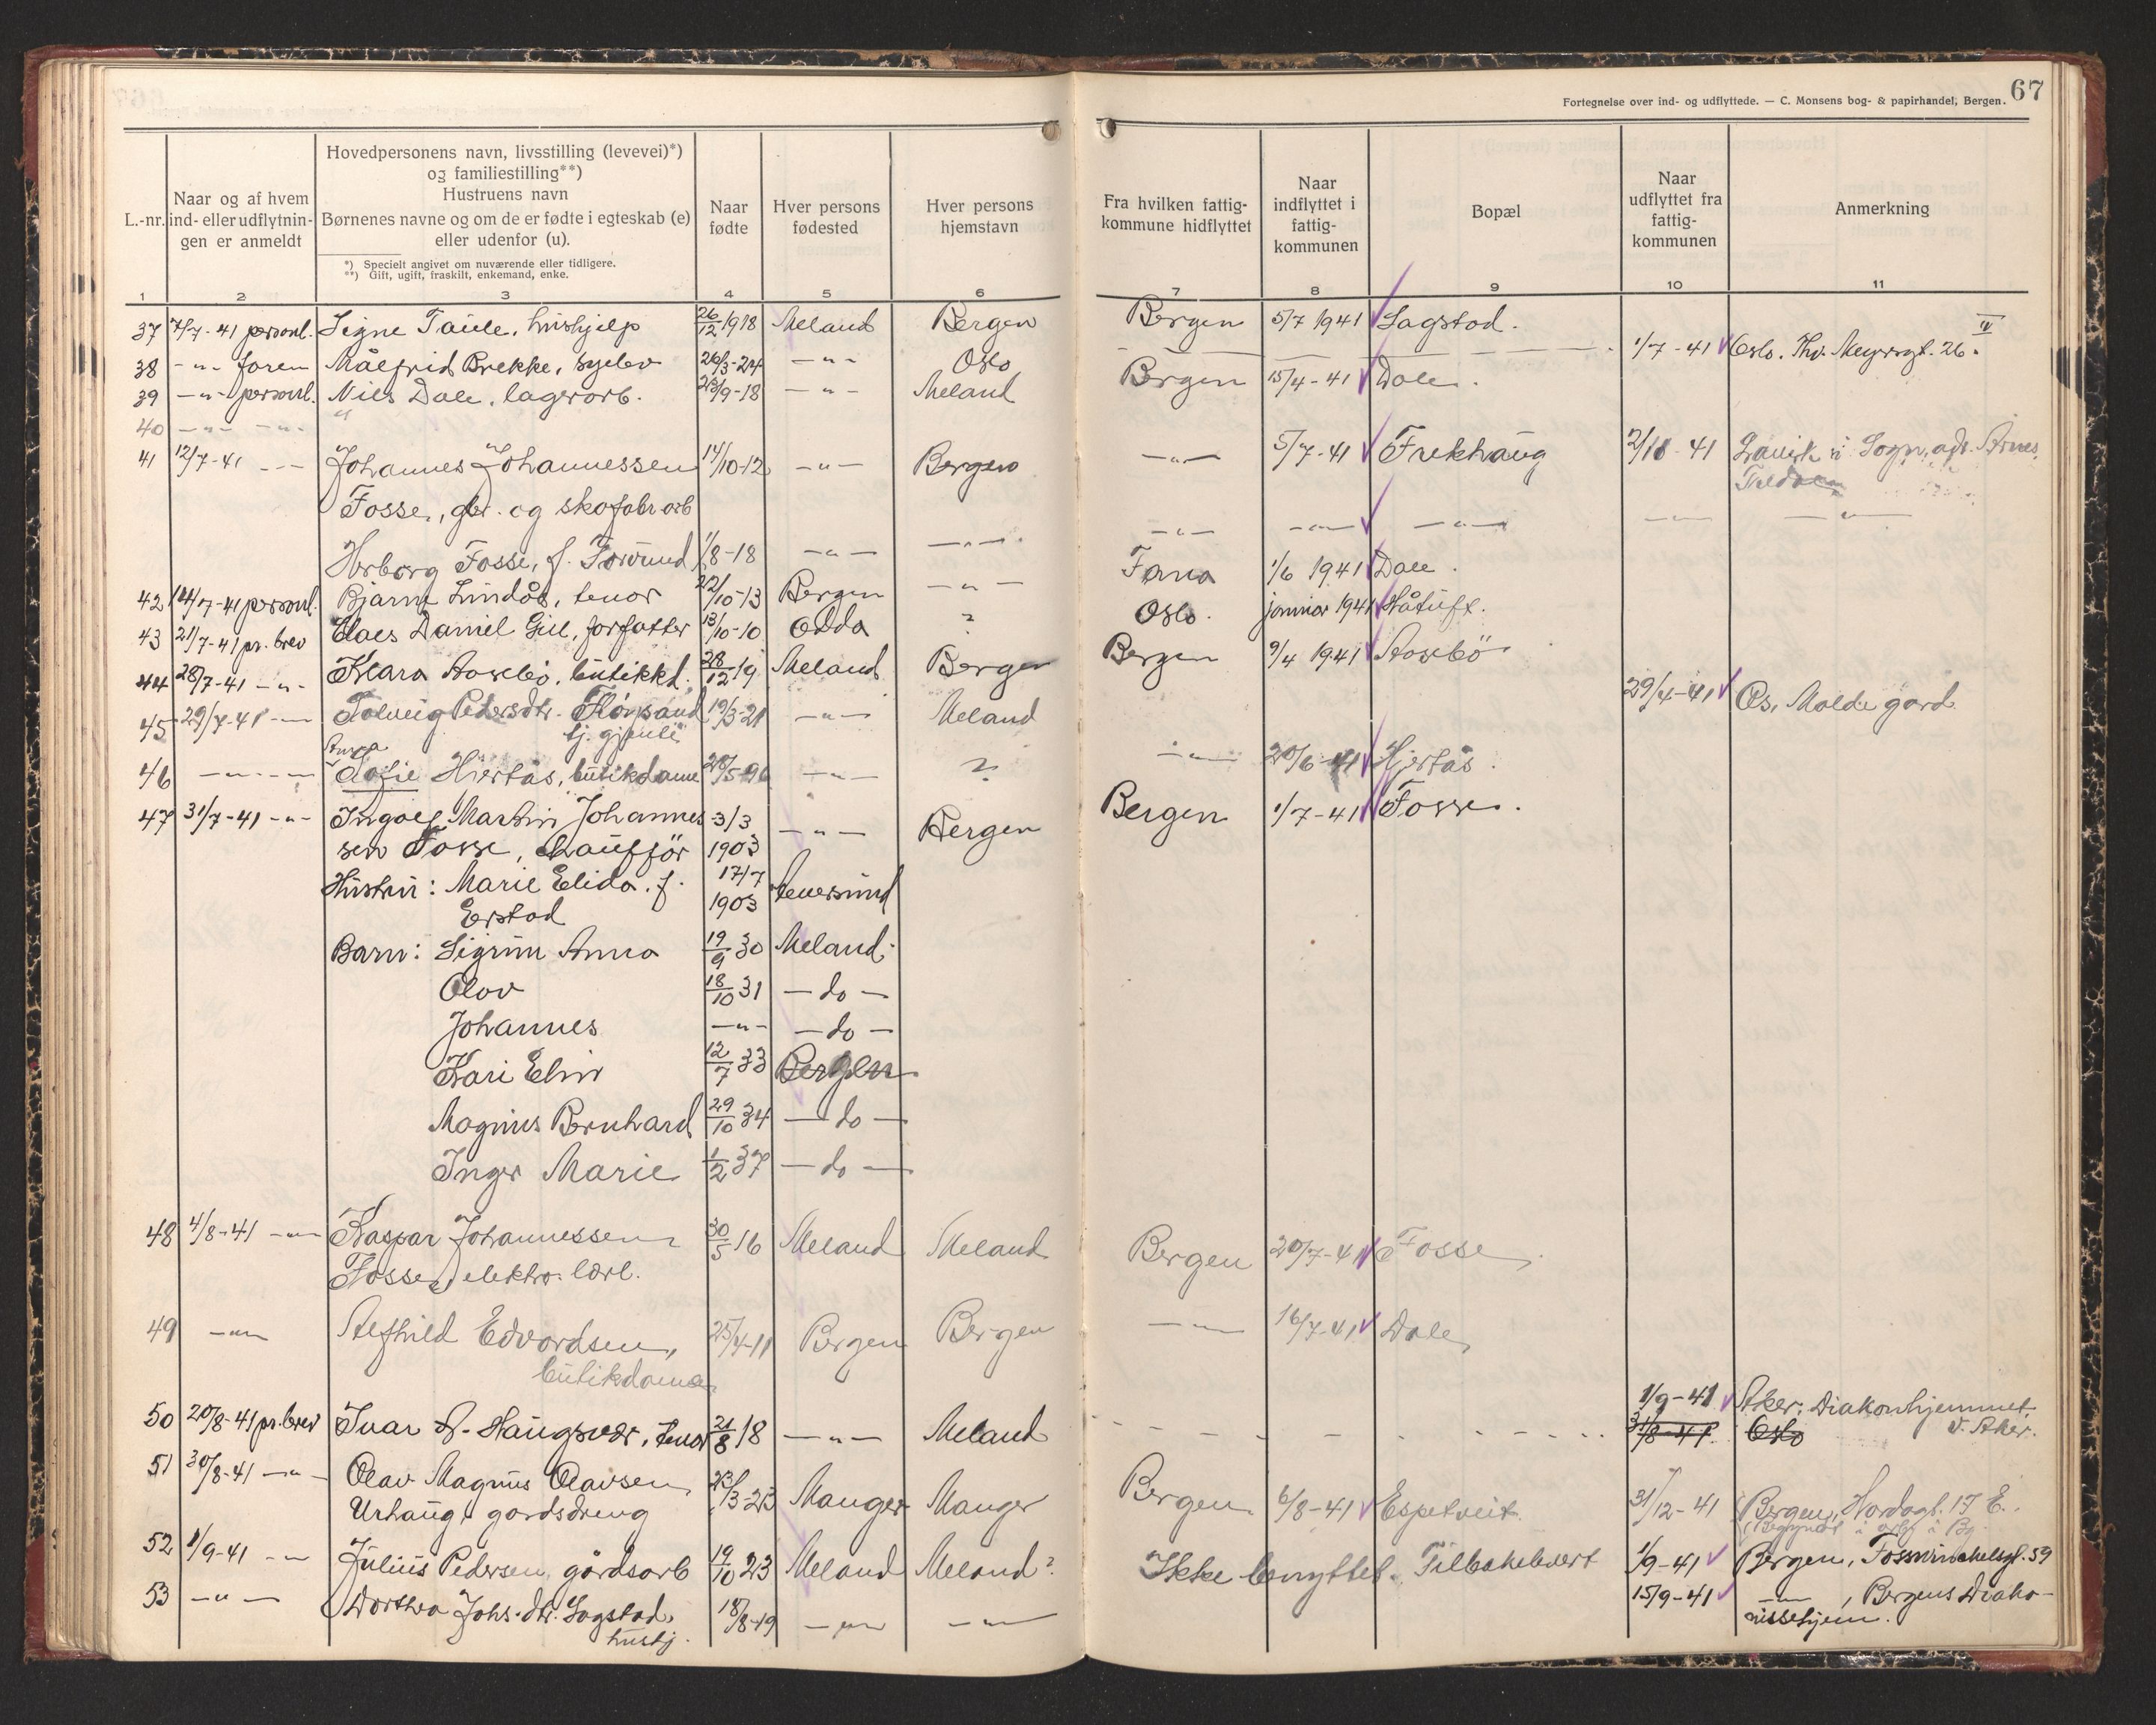 67
Fortegnelse over ind- og udflyttede. — C. Monsens bog- & papirhandel, Bergen.
L.-nr.
Naar og af hvem
ind- eller udflytnin-
gen er anmeldt
Hovedpersonens navn, livsstilling (levevei)*)
og familiestilling**)
Hustruens navn
Børnenes navne og om de er fødte i egteskab (e)
eller udenfor (u).
*) Specielt angivet om nuværende eller tidligere.
**) Gift, ugift, fraskilt, enkemand, enke.
Naar
fødte
Hver persons
fødested
Hver persons
hjemstavn
Fra hvilken fattig-
kommune hidflyttet
Naar
indflyttet i
fattig-
kommunen
Bopæl
Naar
udflyttet fra
fattig-
kommunen
Anmerkning
1 2 3 4 5 6 7 8 9 10 11
37 7/7-41 personl. Signe Taule, hushjelp 26/12 1918 Meland Bergen Bergen 5/7 1941 Sagstad.
38 -"- faren Målfrid Brekke, syelev 26/3-24 -"- Oslo 1/7-41 Oslo. Thv. Meyersgt. 26 IV
39 -"- personl. Nils Dale, lagerarb. 23/9-18 -"- Meland Bergen 15/4-41 Dale.
40 -"- -"- "
41 12/7-41 -"- Johannes Johannessen 14/10-12 -"- Bergen -"- 5/7-41 Frekhaug 2/10-41 Lavik i Sogn, adr. Arnes
Fosse, gbr. og skofabr arb
Herborg Fosse, f. 1/8-18 -"- -"- -"- -"- -"- -"- -"-
42 14/7-41 personl. Bjarne Lindås, tenor 22/10-13 Bergen -"- Fana 1/6 1941 Dale.
43 21/7-41 pr. brev Claes Daniel Gill, forfatter 13/10-10 Odda ? Oslo. januar 1941 Håtuft.
44 28/7-41 -"- Klara Aasebö, butikkd. 28/12 19 Meland Bergen Bergen 9/4 1941 Aasebö
45 29/7-41 -"- Solveig Pedersdtr. Flörsand 19/3-21 -"- Meland 29/7-41 Os, Molde gard.
tj. gjente
46 -"- -"- Anna Sofie Hjertås, butikdame 28/5-96 -"- ? -"- 20/6-41 Hjertås.
47 31/7-41 -"- Ingolf Martin Johannes- 3/3 -"- Bergen Bergen 1/7-41 Fosse.
sen Fosse, chaufför 1903
Hustru: Marie Elida. f. 17/7
Erstad 1903
Barn: Sigrun Anna 19/9 30 Meland
Olav 18/10 31 — do —
Johannes -"- — do —
Kari Elin 12/7 33 Bergen
Magnus Bernhard 29/10 34 — do —
Inger Marie 1/2 37 — do —
48 4/8-41 -"- Kaspar Johannessen 30/5 16 Meland Meland Bergen 20/7-41 Fosse.
Fosse, elektro. lærl.
49 -"- Alfhild Edvardsen, 25/4-11 Bergen Bergen -"- 16/7-41 Dale
butikdame
1/9-41 Aker: Diakonhjemmet
50 20/8-41 pr. brev Ivar A. Haugsvær, tenor 21/8 18 -"- Meland 31/8-41 Oslo V. Aker.
51 30/8-41 -"- Olav Magnus Olavsen 23/3-23 Manger Manger Bergen 6/8-41 Espetveit. 31/12-41 Bergen, Hordagt. 17 E.
Urhaug gardsdreng
52 1/9-41 -"- Julius Pedersen, gårdsarb 19/10 23 Meland Meland? Ikke benyttet. Tilbakelevert 1/9-41 Bergen, Fosswinckelsgt. 59
53 -"- Dorthea Johs. dtr. Sagstad, 18/8-19 -"- -"- 15/9-41 -"-, Bergens Diako-
hushj. nissehjem.